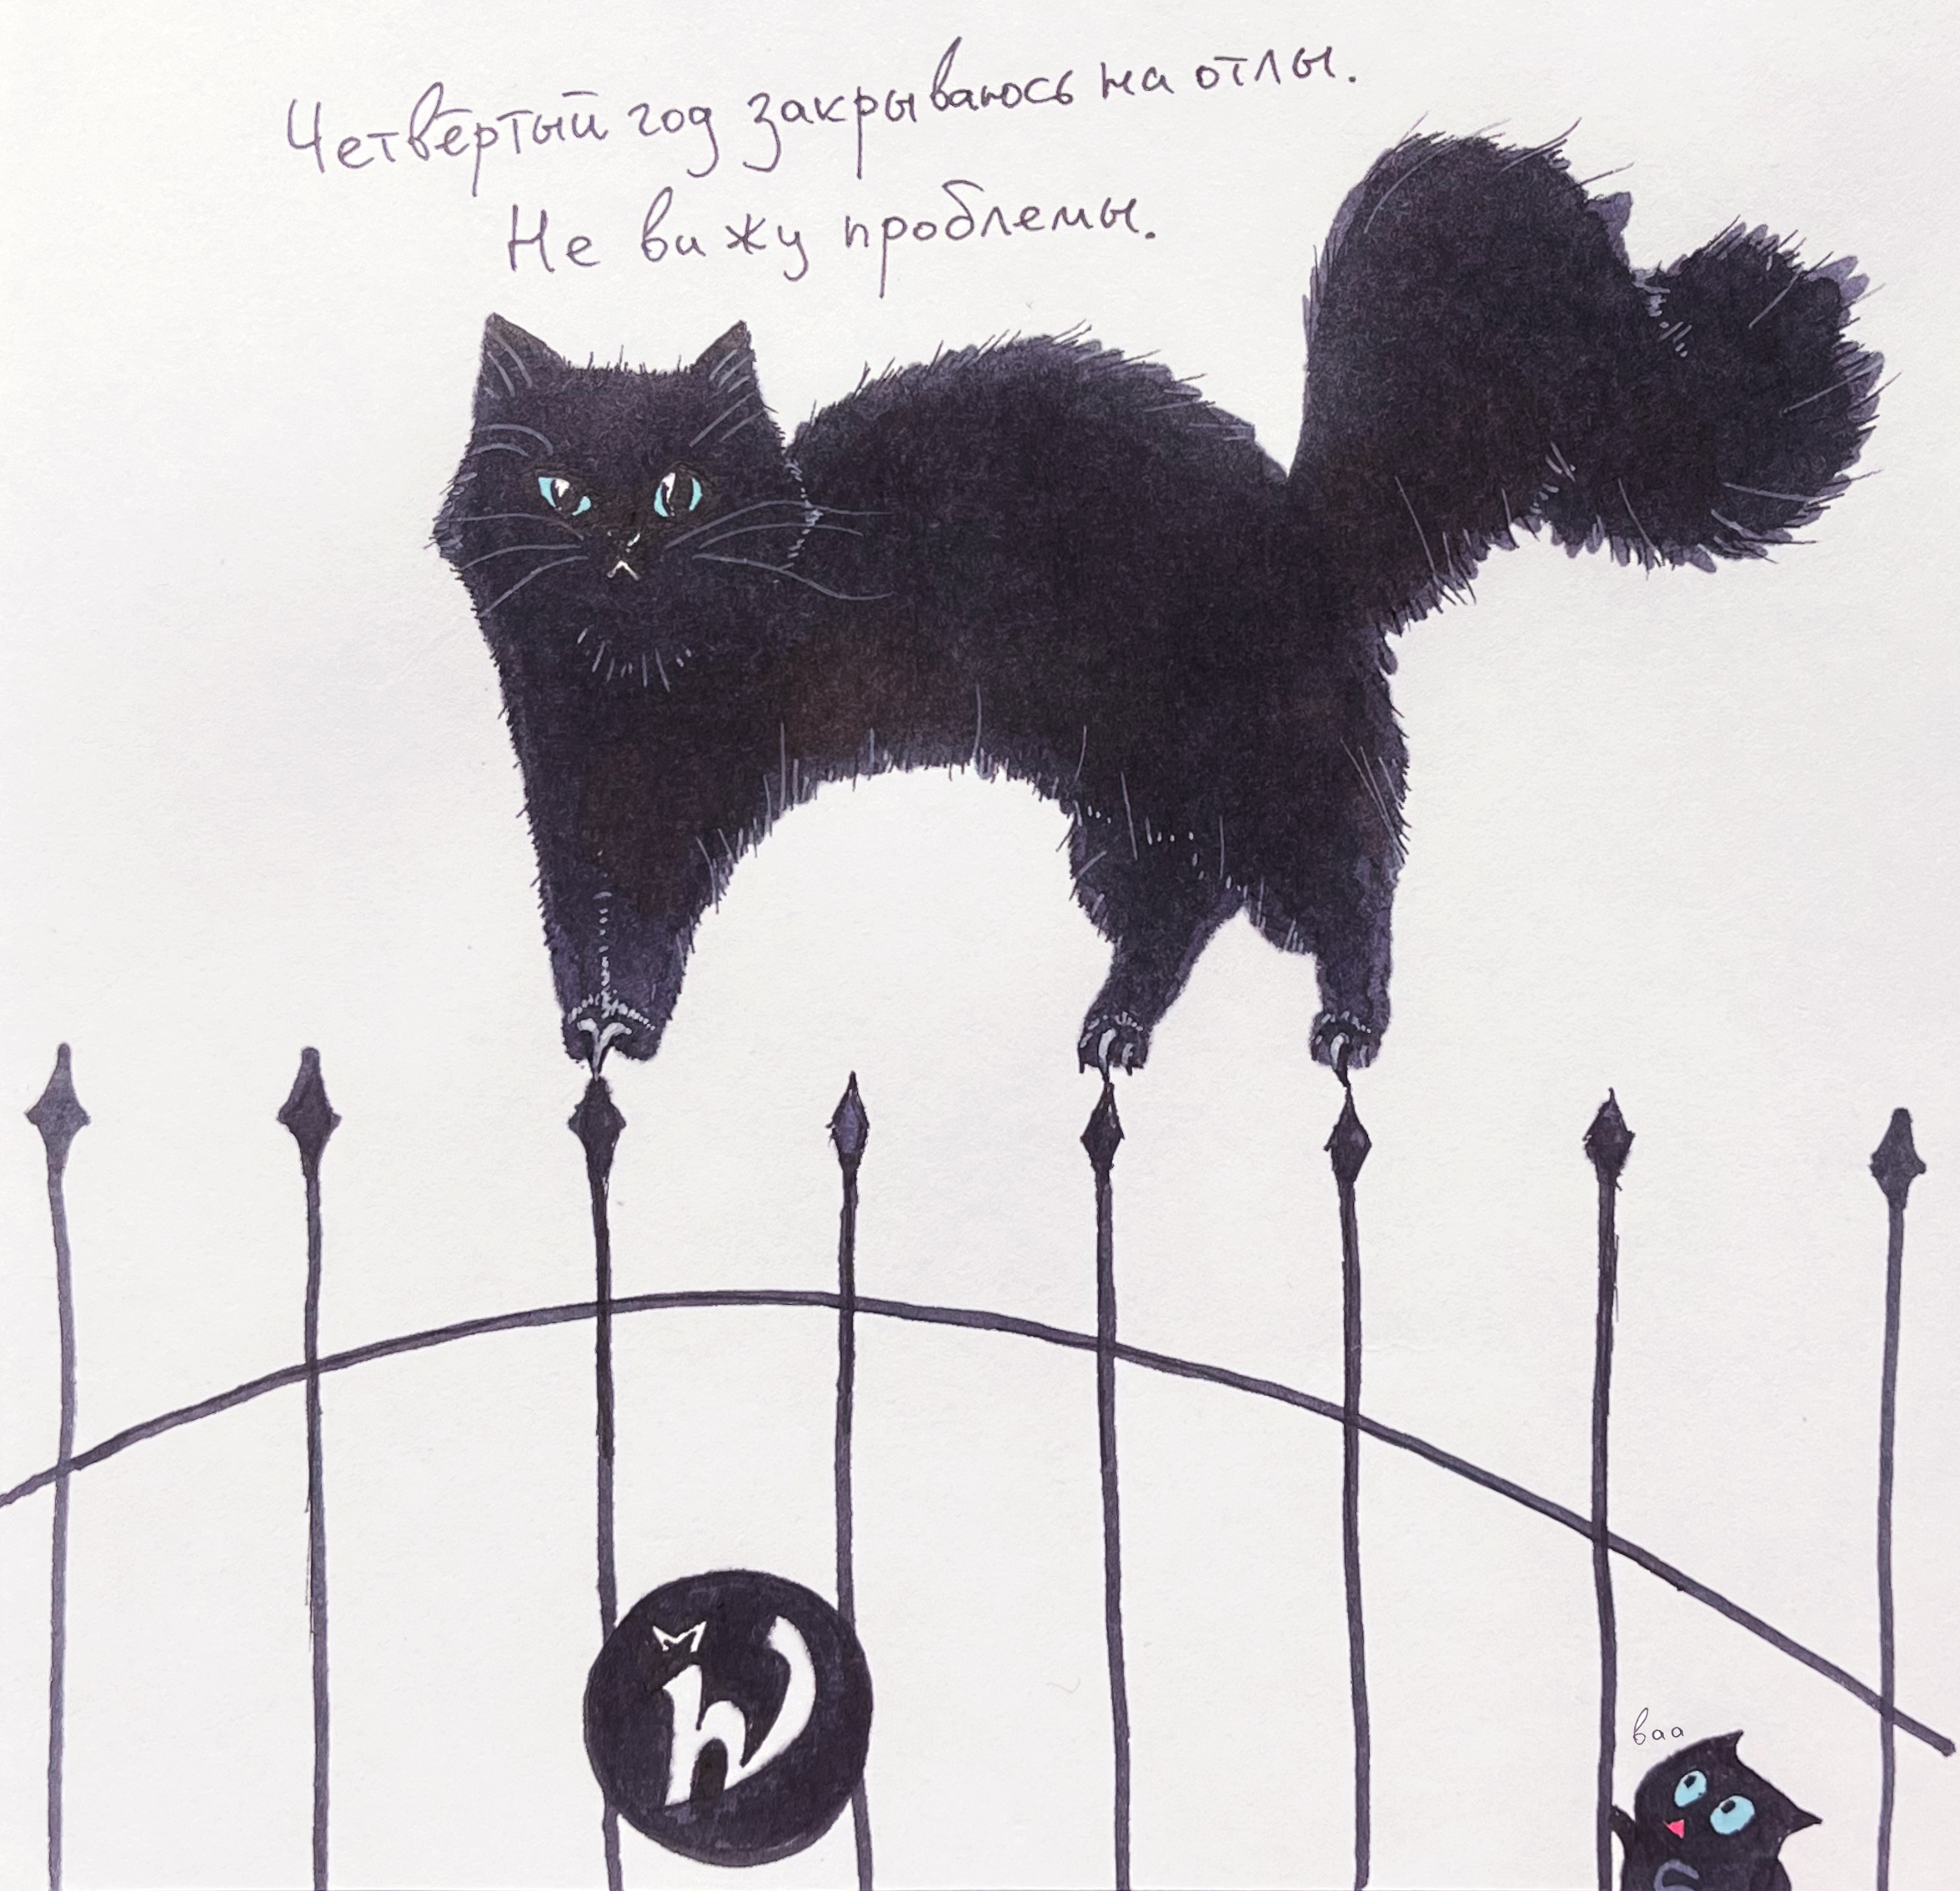 Четвёртый год закрываюсь на отлы.
Не вижу проблемы.
h
ваа